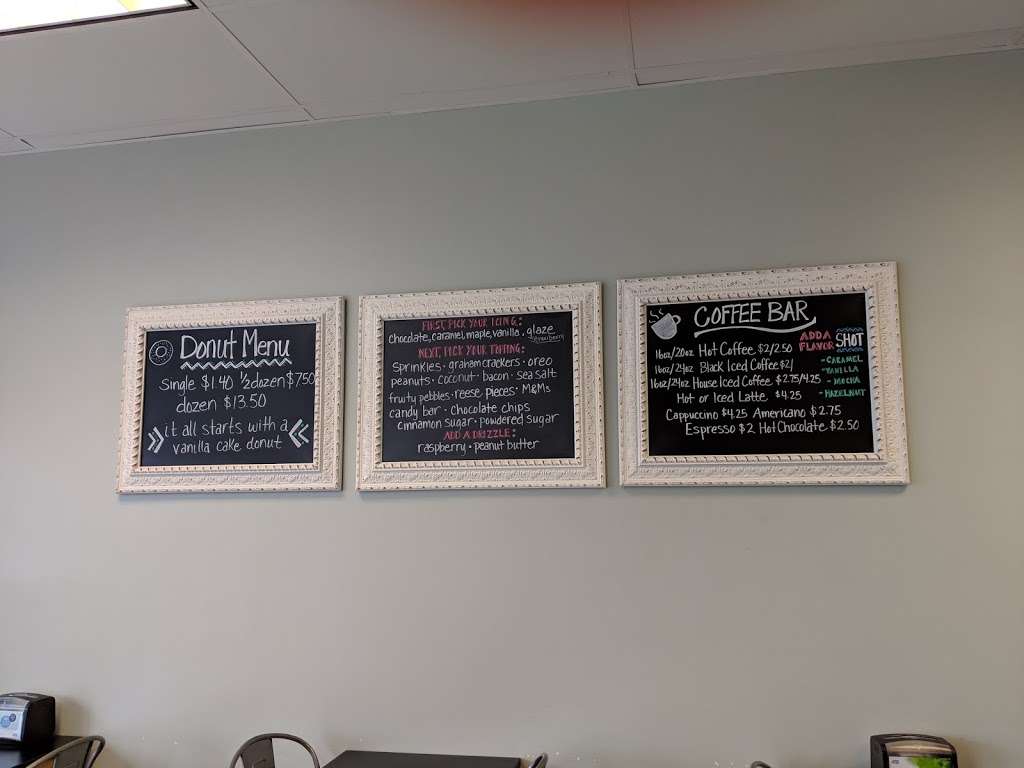 Donut Menu
single $1.40 ½ dozen $7.50
dozen $13.50
it all starts with a
vanilla cake donut
FIRST, PICK YOUR ICING:
chocolate, caramel, maple, vanilla, glaze
strawberry
NEXT, PICK YOUR TOPPING:
Sprinkles · graham crackers · oreo
peanuts · coconut · bacon · sea salt
fruity pebbles · reese pieces · M&Ms
candy bar · chocolate chips
cinnamon sugar · powdered sugar
ADD A DRIZZLE:
raspberry · peanut butter
COFFEE BAR
16oz/20oz Hot Coffee $2/2.50
16oz/24oz Black Iced Coffee $2/
16oz/24oz House Iced Coffee $2.75/4.25
Hot or Iced Latte $4.25
Cappuccino $4.25 Americano $2.75
Espresso $2 Hot Chocolate $2.50
ADD A
FLAVOR SHOT
- CARAMEL
- VANILLA
- MOCHA
- HAZELNUT